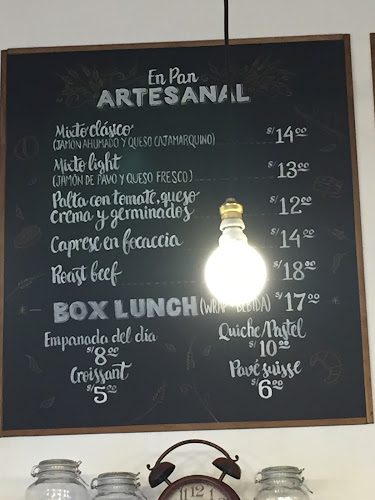 En Pan
ARTESANAL
Mixto clásico S/14.00
(JAMÓN AHUMADO Y QUESO CAJAMARQUINO)
Mixto light S/13.00
(JAMÓN DE PAVO Y QUESO FRESCO)
Palta con tomate, queso
crema y germinados S/12.00
Caprese en focaccia S/14.00
Roast beef S/18.00
BOX LUNCH (WRAP + BEBIDA) S/17.00
Empanada del día Quiche/Pastel
S/8.00 S/10.00
Croissant Pavé suisse
S/5.00 S/6.00
12